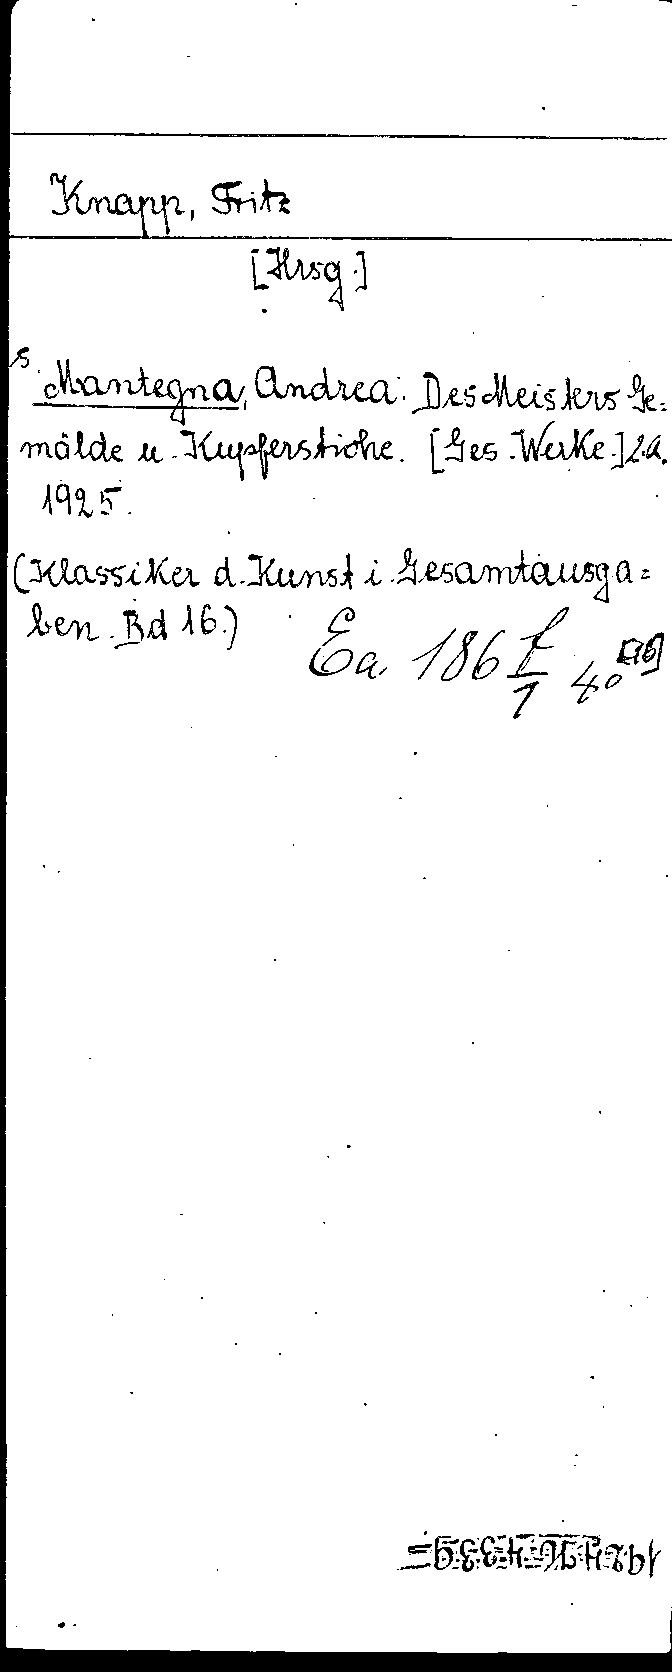 Knapp, Fritz
[Hrsg.]
s. Mantegna, Andrea: Des Meisters Ge=
mälde u. Kupferstiche. [Ges. Werke.] 2.A.
1925.
(Klassiker d. Kunst i. Gesamtausga=
ben. Bd 16.)
Ea. 186 f/1 4° [16]